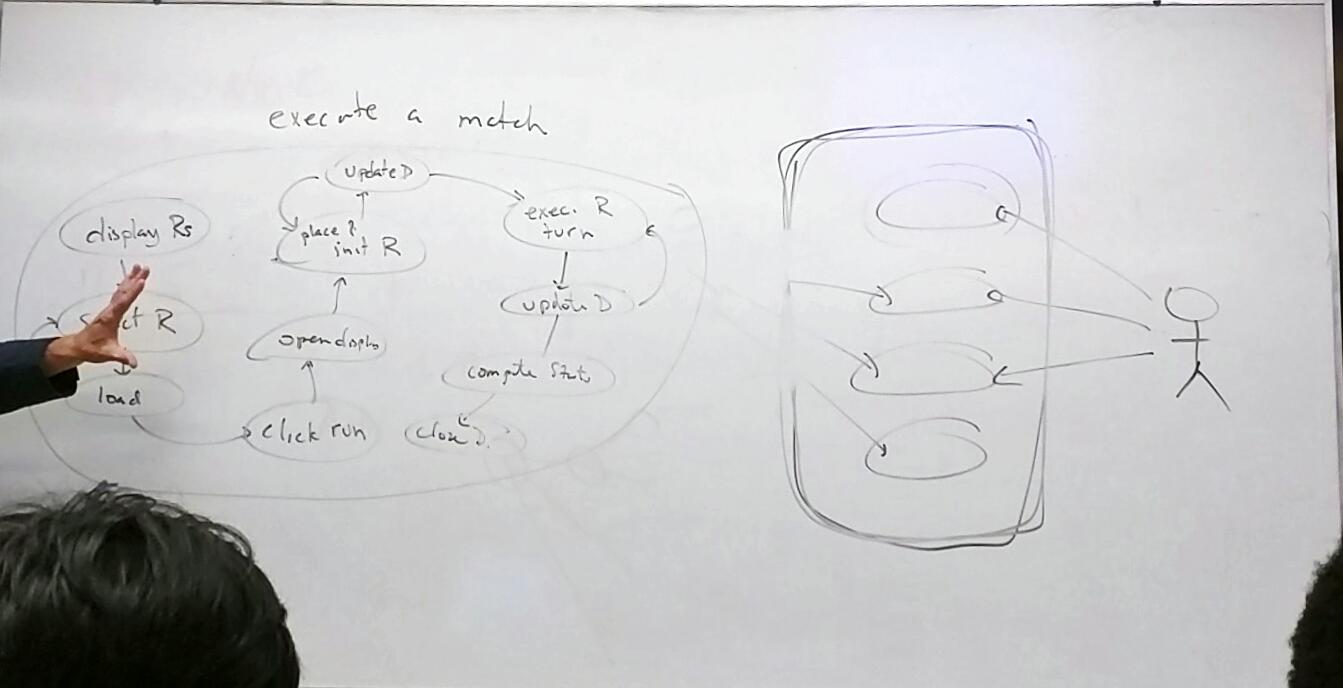 execute a match
display Rs
R
load
click run
open display
place &
init R
update D
exec. R
turn
update D
compute Stats
close D.